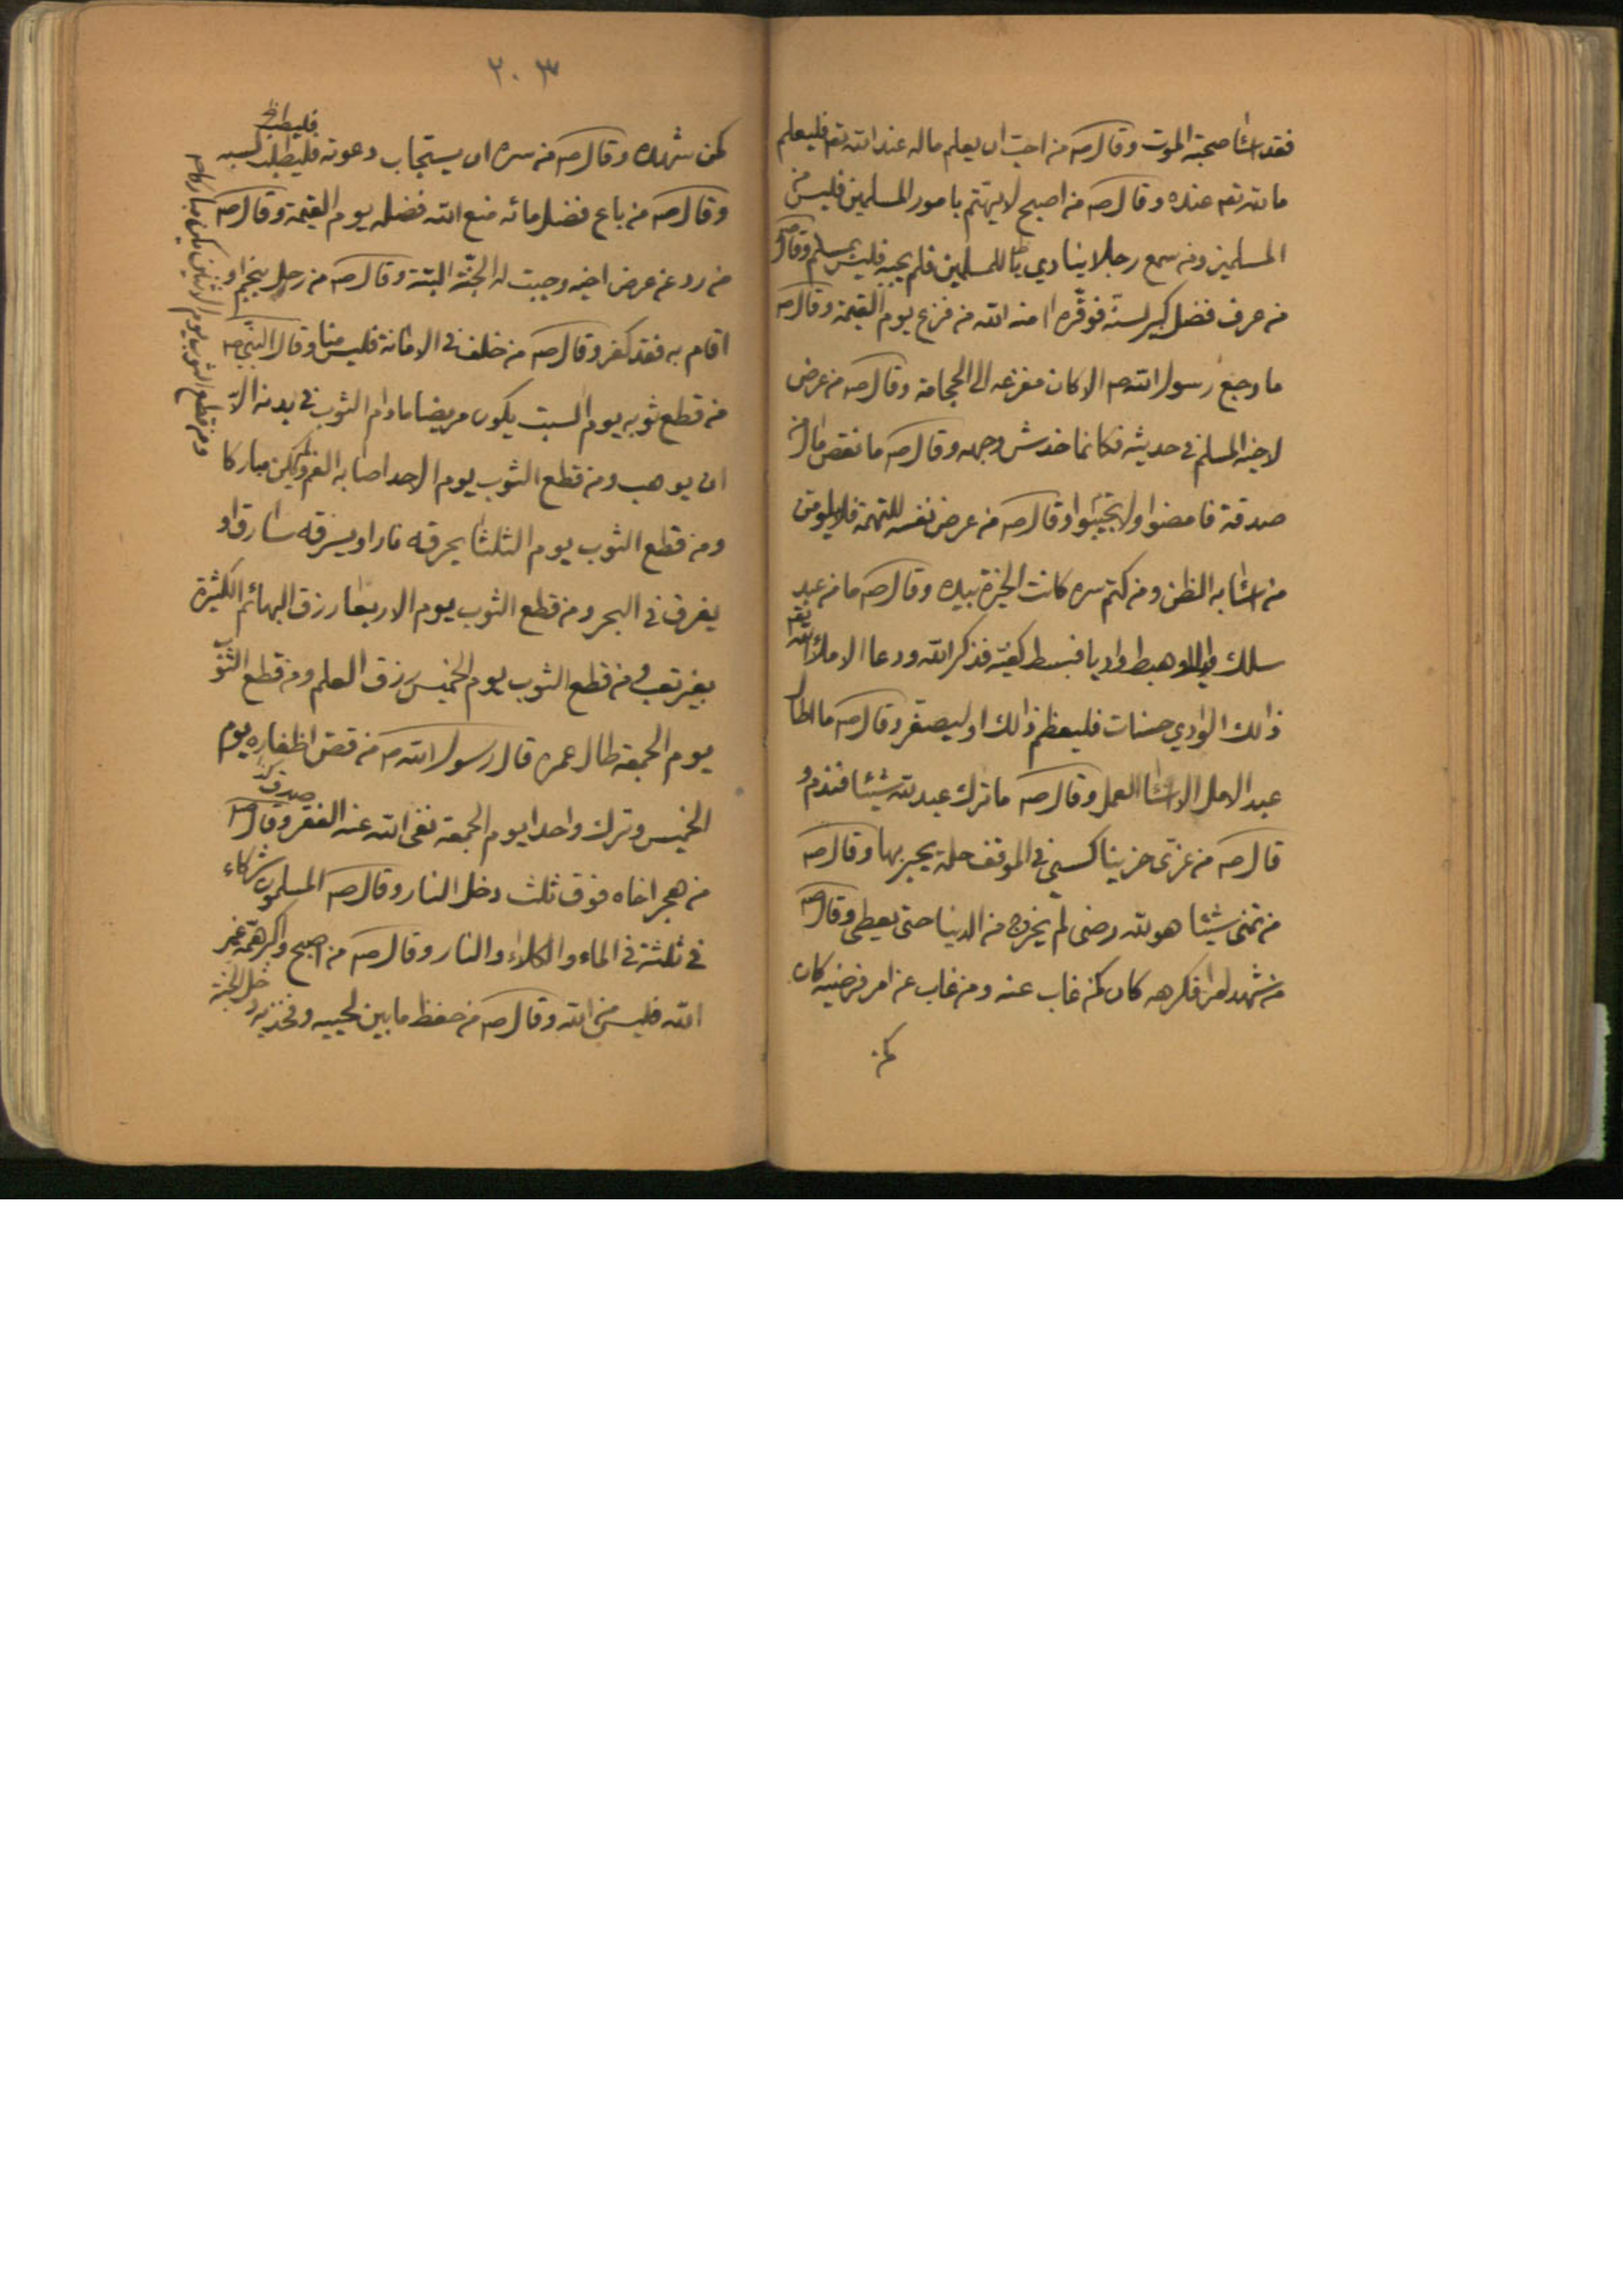 فقد اسٰا صحبة الموت وقال صه من احبّ ان يعلم ماله عند الله تعم فليعلم
ما لله تعم عنده وقال صه من اصبح لا يهتم بامور المسلمين فليس من
المسلمين ومن سمع رجلا ينادي يا للمسلمين فلم يجبه فليس بمسلم وقال صه
من عرف فضل كبير لسنّه فوقّره امنه الله من فزع يوم القيمة وقال صه
ما وجع رسول الله صه الا كان مفزعه الى الحجامة وقال صه من عرض
لاخيه المسلم في حديثه فكانما خدش وجهه وقال صه ما نقص مال من
صدقة فامضوا ولا تجبّنوا وقال صه من عرض نفسه للتهمة فلا يلومن
من اسٰا به الظن ومن كتم سره كانت الخيرة بيده وقال صه ما من عبد
سلك وهبط واديا فبسط كفيه فذكر الله ودعا الا ملأ الله تعم
ذالك الوادي حسنات فليعظم ذالك او ليصغر وقال صه ما اطال
عبد الامل الا اسٰا العمل وقال صه ما ترك عبد لله شيئا فندم و
قال صه من عزّى حزينا كسى في الموقف حلة يحبر بها وقال صه
من تمنى شيئا هو لله رضى لم يخرج من الدنيا حتى يعطى وقال صه
من شهد امرا فكرهه كان كمن غاب عنه ومن غاب عن امر فرضيه كان
كمن
٢٠٣
فليطب خ
كمن شهده وقال صه من سره ان يستجاب دعوته فليطلب كسبه
وقال صه من باع فضل مائه منع الله فضله يوم القيمة وقال صه
من رد عن عرض اخيه وجبت له الجنّة البتة وقال صه من رحل بنجم او
اقام به فقد كفر وقال صه من خلف في الامانة فليس منا وقال النبي صه
من قطع ثوبه يوم السبت يكون مريضا مادام الثوب في بدنه الّا
ان يوهب ومن قطع الثوب يوم الاحد اصابه الغم ولم يكن مباركا
ومن قطع الثوب يوم الاثنين يكون مباركا صه
ومن قطع الثوب يوم الثلثا يحرقه نار او يسرقه سارق او
يغرق في البحر ومن قطع الثوب يوم الاربعا رزق البهائم الكثيرة
بغير تعب ومن قطع الثوب يوم الخميس رزق العلم ومن قطع الثوب
يوم الجمعة طال عمره قال رسول الله صه من قص اظفاره يوم
الخميس وترك واحدا يوم الجمعة نفى الله عنه الفقر وقال صه
من هجر اخاه فوق ثلث دخل النار وقال صه المسلمون شركاء
في ثلثة في الماء والكلاء والنار وقال صه من اصبح واكبر همّه غير
الله فليس من الله وقال صه من حفظ ما بين لحييه وفخذيه دخل الجنة